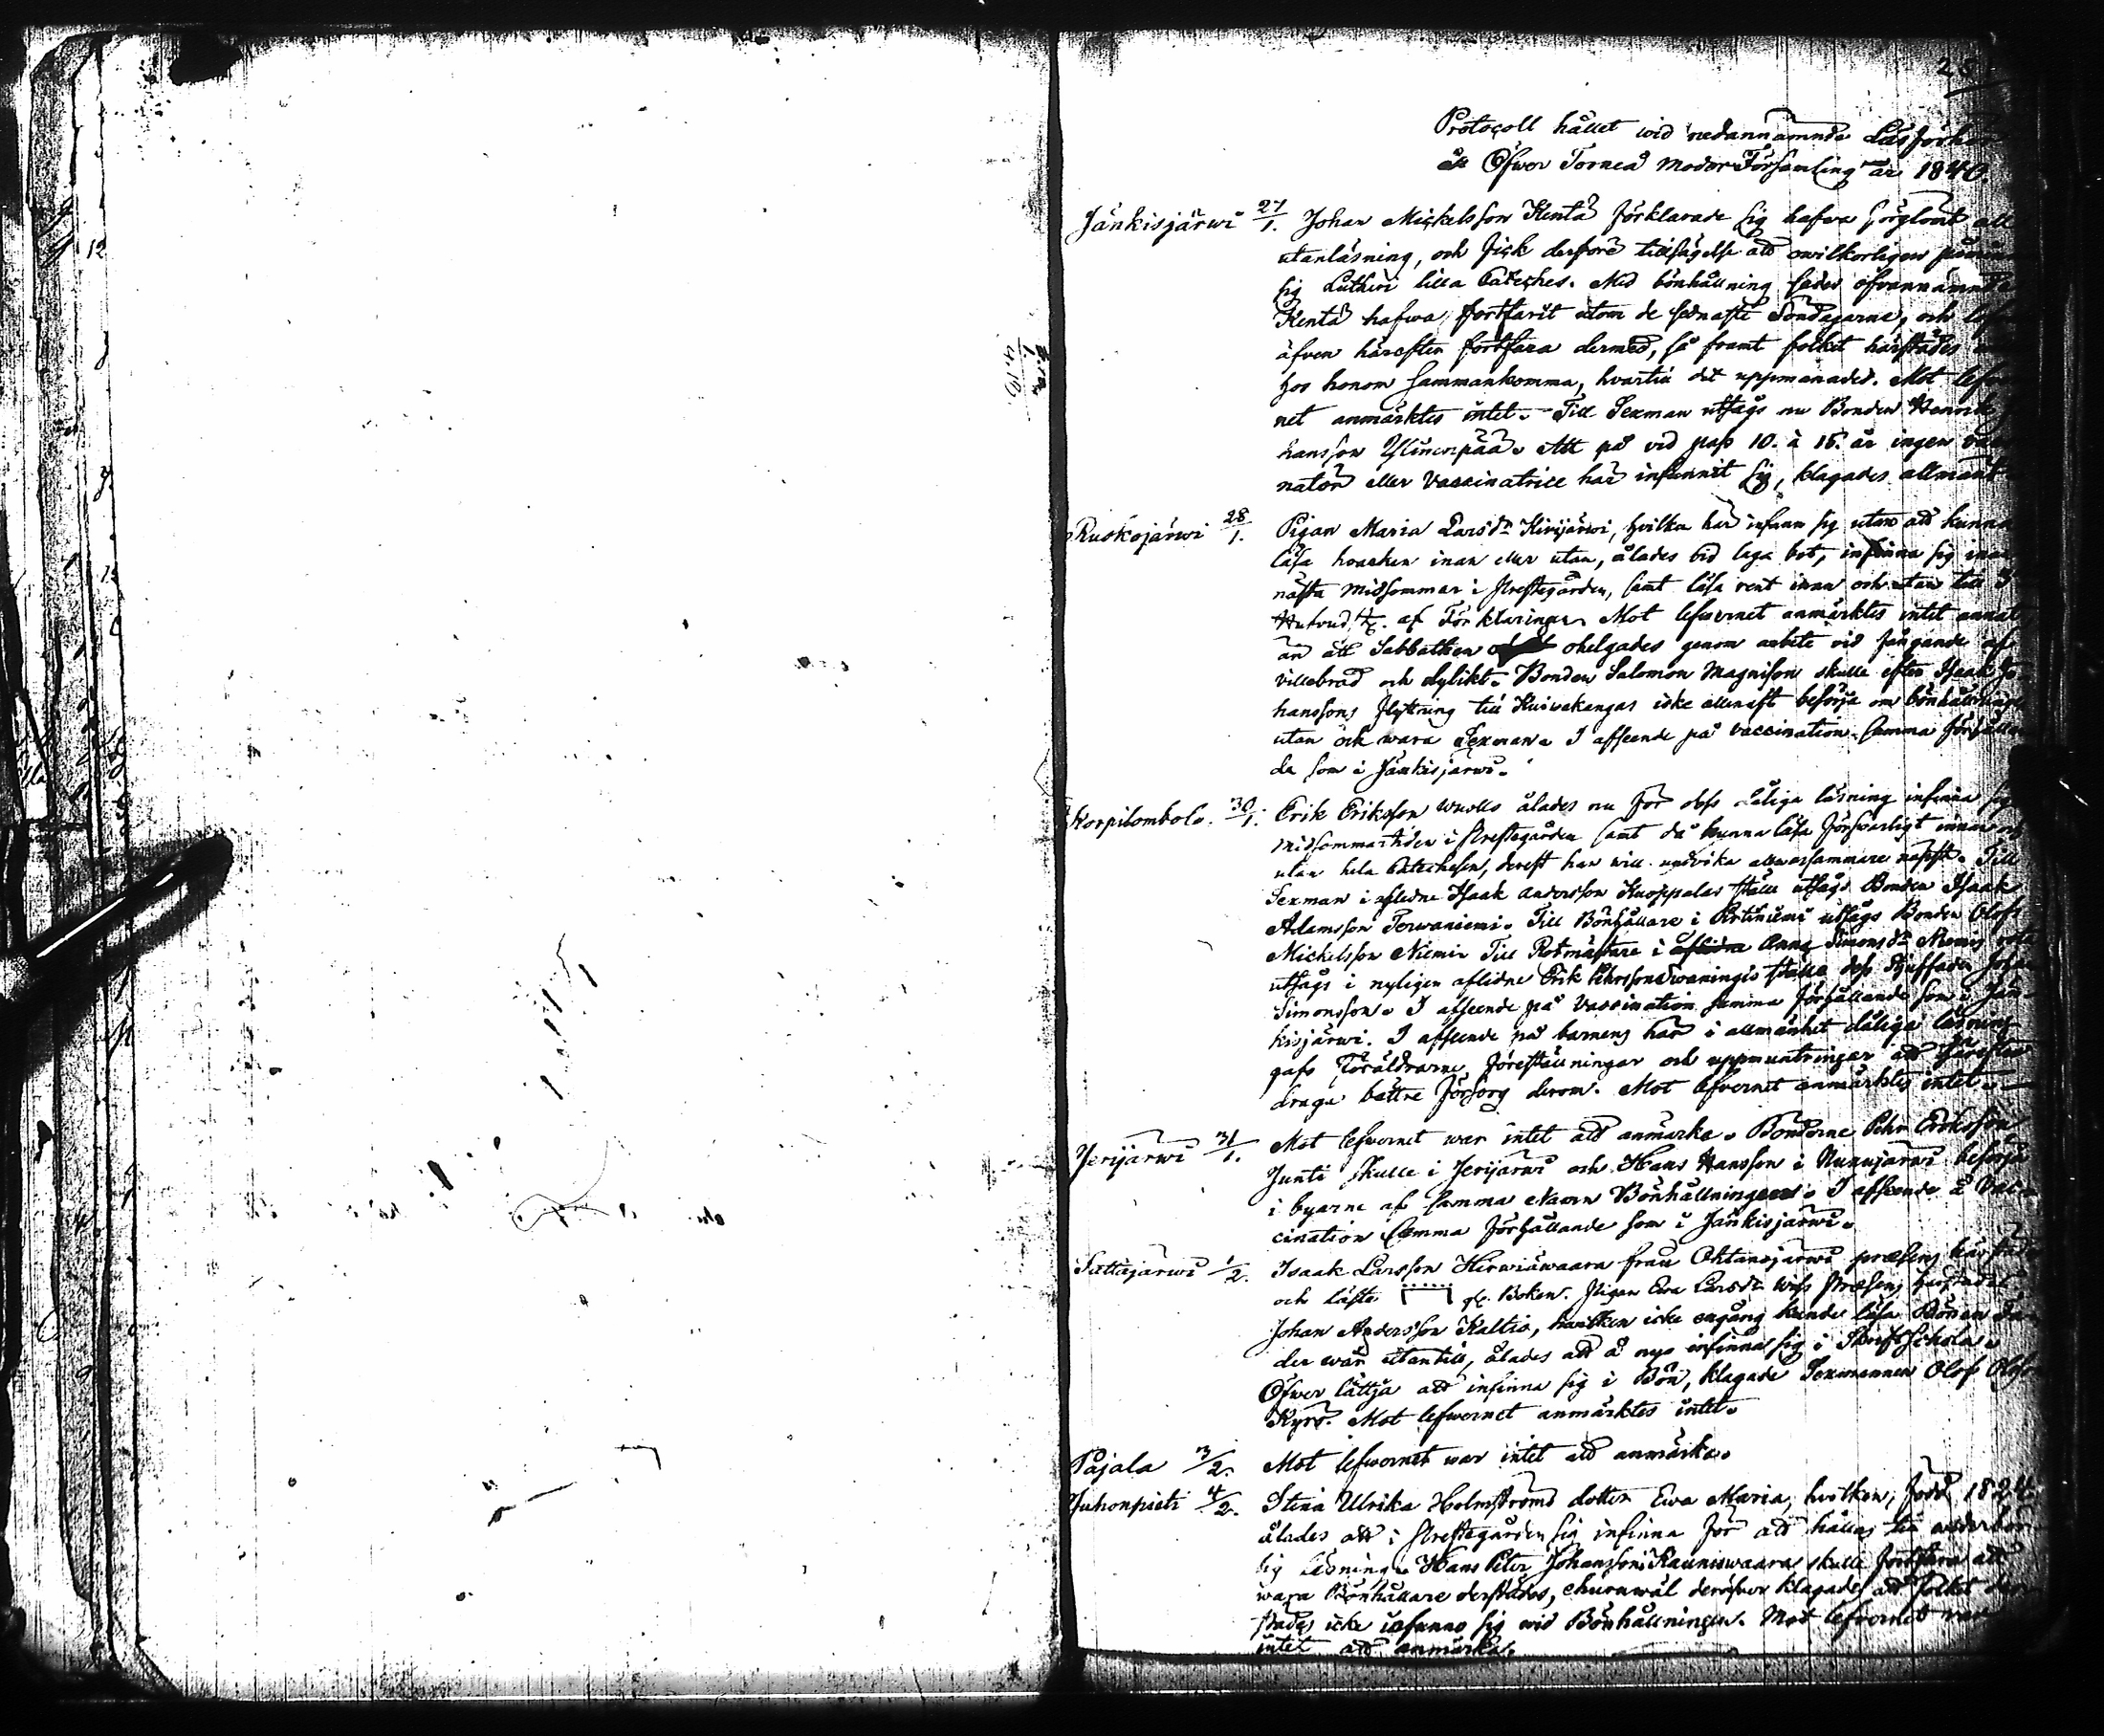 Protocoll hållet wid nedannämnde Läsförhör
åt Öfwer Torneå Moder Församling år 1840.
Jänkisjärwi 27/1. Johan Mickelsson Kentä förklarade sig hafwa förglömt all
utanläsning, och fick derföre tillsägelse att owilkorligen
sig Lutheri lilla Cateches. Med bönhållning sades ofvannämnde
Kentä hafwa fortfarit utom de sednaste Söndagarne, och
äfven härefter fortfara dermed, så framt folket härstädes
hos honom sammankomma, hvartill det uppmanades. Mot lefver
net anmärktes intet. Till Sexman utsågs nu Bonden Henrik
hansson Ylinenpää. Att på vid pass 10. à 15. år ingen vacci
nator eller Vaccinatrice har infunnit sig, klagades allmänt.
Ruokojärwi 28/1. Pigan Maria Larsdr Kirijärwi, hvilken har infann sig utan att kunna
läsa hvarken innan eller utan, ålades vid laga bot, infinna sig innan
nästa Midsommar i Prestegården, samt läsa rent innan och utan till 3
Hufvud St. af Förklaringen. Mot lefvernet anmärktes intet annat
än att Sabbathen ohelgades genom arbete vid fångande af
villebråd och dylikt. Bonden Salomon Magnisson skulle efter Isaak Jo
hanssons flyttning till Kuivakangas icke allenast besörja om bönhållningen
utan och wara Sexman. I afseende på vaccination samma förhållan
de som i Jänkisjärwi.
Korpilombolo. 30/1. Erik Eriksson Wuollo ålades nu för dess dåliga läsning infinna sig
Midsommartiden i Prestegården samt då kunna läsa försvarligt innan och
utan hela Catechesen, derest han will undvika allwarsammare näpst. Till
Sexman i aflidne Isaak Andersson Kuoppalas ställe utsågs Bonden Isaak
Adamsson Terwaniemi. Till Bönhållare i Pirttiniemi utsågs Bonden Olof
Mickelsson Niemi. Till Rotmästare i aflidne Anna Simonsdr Niemis rota
utsågs i nyligen aflidne Erik Pehrsson Swanings ställe dess Styffader Johan
Simonsson. I afseende på Vaccination samma förhållande som i Jän-
kisjärwi. I afseende på barnens här i allmänhet dåliga läsning
gafs Föräldrarne föreställningar och uppmuntringar att härefter
draga bättre försorg derom. Mot lefvernet anmärktes intet.
Jerijärwi 31/1. Mot lefvernet war intet att anmärka. Bönderne Pehr Eriksson
Junti skulle i Jerijärwi och Hans Hansson i Nunujärwi besörja
i byarne af samma Namn Bönhållningen. I afseende å Vac-
cination samma förhållande som i Jänkisjärwi.
Sattajärwi 1/2. Isaak Larsson Hirwiäwaara från Ohtanajärwi præsens härstädes
och läste Boken. Pigan Ewa Larsdr præsens härstädes
Johan Andersson Kaltio, hvilken icke engång kunde läsa Bönen Fa
der wår utantill, ålades att å nyo infinna sig i Skriftschola.
Öfwer lättja att infinna sig i Bön, klagade Sexmannen Olof Olofs
Kyrö. Mot lefwernet anmärktes intet.
Pajala 3/2. Mot lefwernet war intet att anmärka.
Juhonpieti 4/2. Stina Ulrika Holmströms dotter Ewa Maria, hvilken, född 1824.
ålades att i Prestegården sig infinna för att hållas till
lig läsning. Hans Peter Johansson i Kauniswaara skulle fortfara att
wara Bönhållare derstädes, churuwäl deröfver klagades att folket der
städes icke infunno sig wid Bönhållningen. Mot lefvernet var
intet att anmärka.